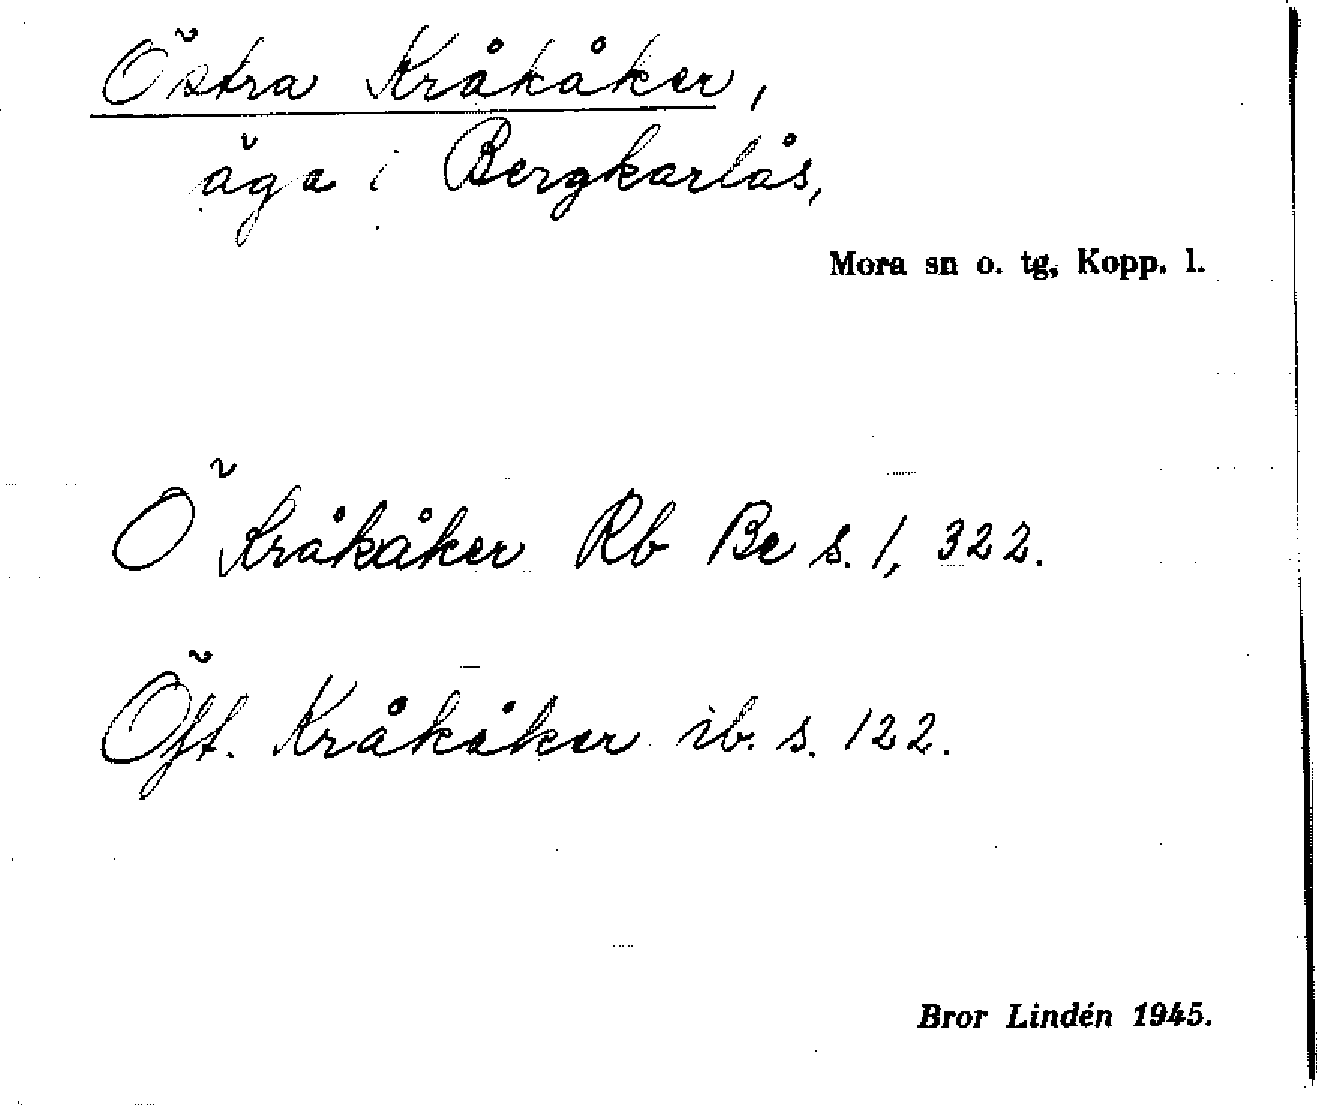 Östra Kråkåker,
äga i Bergkarlås,
Mora sn o. tg, Kopp. l.
Ö Kråkåker Rb Be s. 1, 322.
Öft. Kråkåker ib. s. 122.
Bror Lindén 1945.